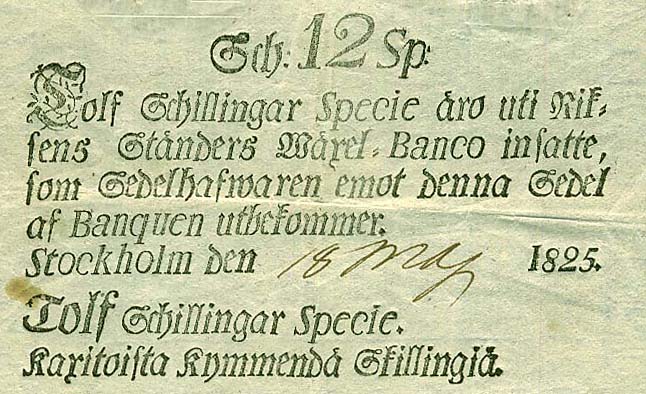 Sch: 12 Sp:
Tolf Schillingar Specie äro uti Rik-
sens Ständers Wäxel-Banco insatte,
som Sedelhafwaren emot denna Sedel
af Banquen utbekommer.
Stockholm den 18 May 1825.
Tolf Schillingar Specie.
Kaxitoista Kymmendä Skillingiä.